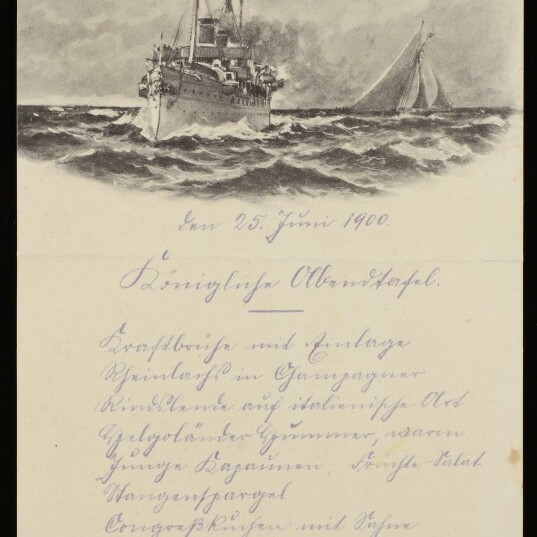 den 25. Juni 1900.
Königliche Abendtafel.
Kraftbrühe mit Einlage
Rheinlachs in Champagner
Rindslende auf italienische Art
Helgoländer Hummer, warm
Junge Kapaunen, Früchte-Salat
Stangenspargel
Congreßkuchen mit Sahne